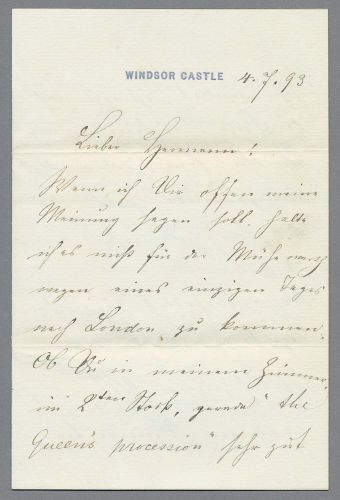 WINDSOR CASTLE 4.7.93
Lieber Hermann!
Wenn ich Dir offen meine
Meinung sagen soll, halte
ich es nicht für der Mühe werth
wegen eines einzigen Tages
nach London zu kommen.
Ob Du in meinem Zimmer,
im 2ten Stock, gerade "the
Queen's procession" sehr gut